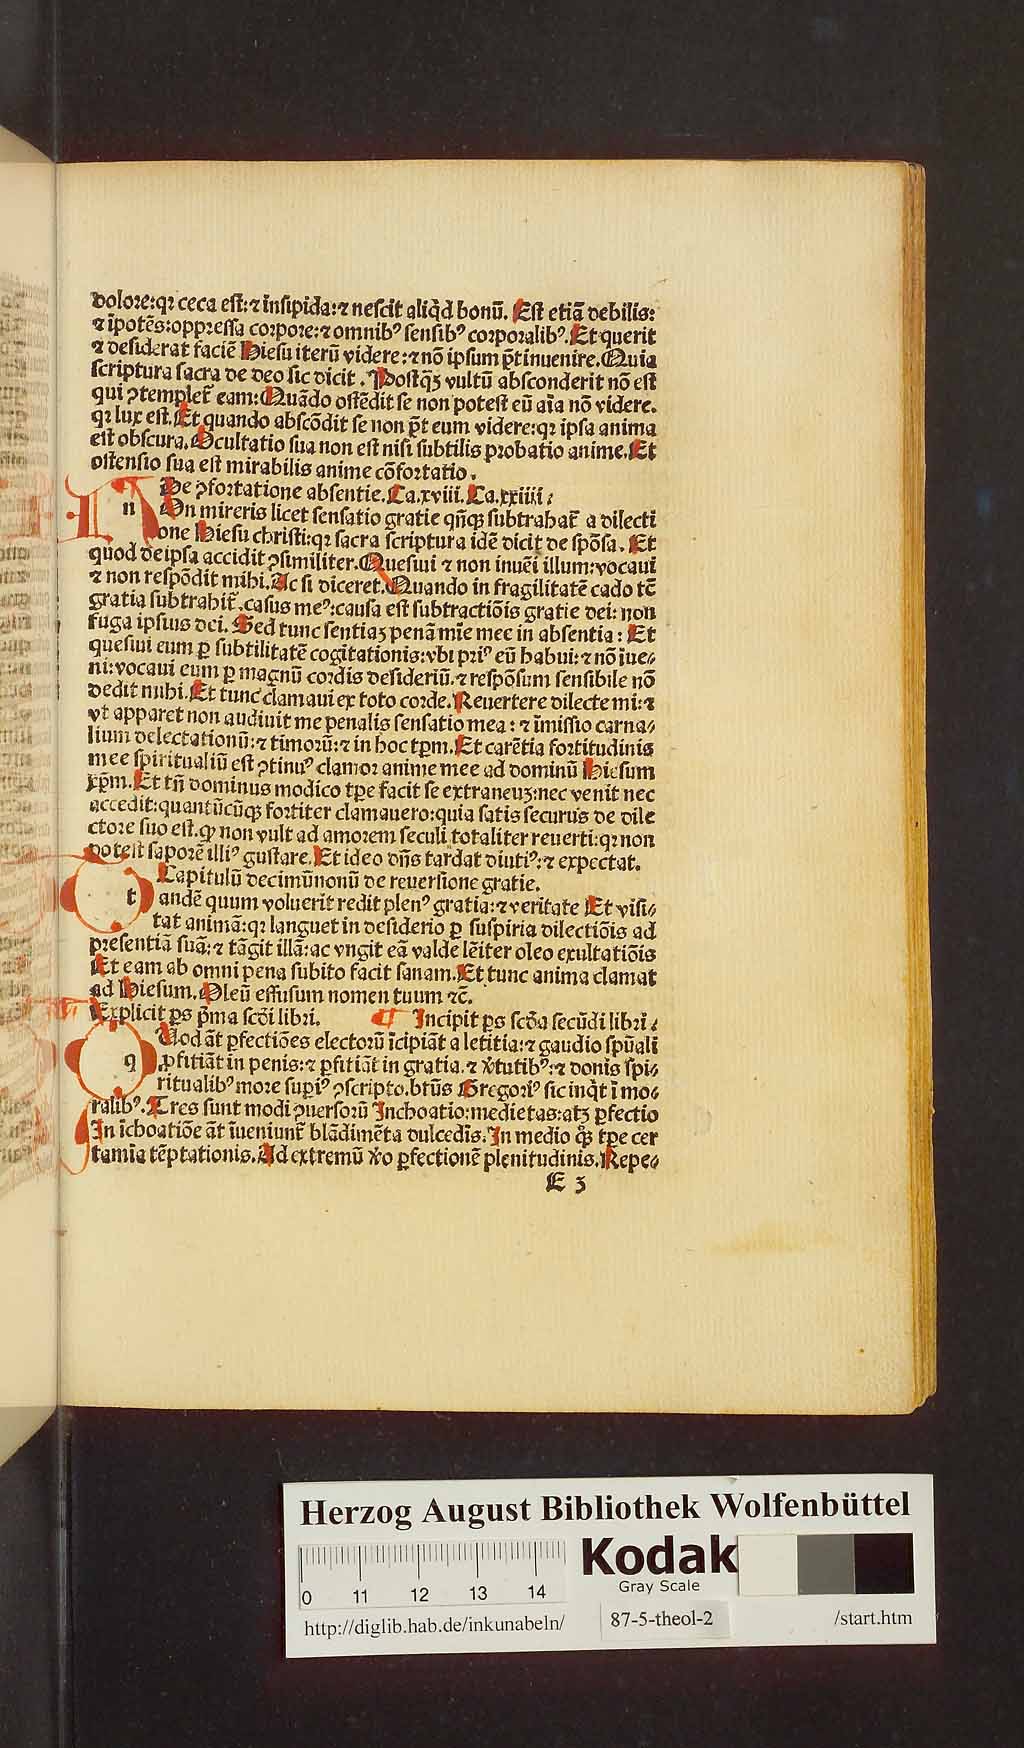 dolore:qꝛ ceca est:⁊ insipida:⁊ nescit aliq̇d bonū. Est etiā debilis:
⁊ īpotēs:oppressa corpore:⁊ omnibꝰ sensibꝰ corporalibꝰ. Et querit
⁊ desiderat faciē Hiesu iterū videre:⁊ nō ipsum p̄t inuenire. Quia
scriptura sacra de deo sic dicit. Postq̄ꝫ vultū absconderit nō est
qui ꝯtemplet̄ eam: Quādo ostēdit se non potest eū aīa nō videre.
qꝛ lux est. Et quando abscōdit se non p̄t eum videre:qꝛ ipsa anima
est obscura. Ocultatio sua non est nisi subtilis probatio anime. Et
ostensio sua est mirabilis anime cōfortatio.
De ꝯfortatione absentie. Ca.xviii. Ca.xxiiii.
n On mireris licet sensatio gratie qn̄qꝫ subtrahat̄ a dilecti
one Hiesu christi:qꝛ sacra scriptura idē dicit de spōsa. Et
quod de ipsa accidit ꝯsimiliter. Quesiui ⁊ non inuēi illum:vocaui
⁊ non respōdit mihi. Ac si diceret. Quando in fragilitatē cado tc̄
gratia subtrahit̄. casus meꝰ:causa est subtractiōis gratie dei: non
fuga ipsius dei. Sed tunc sentiaꝫ penā mīe mee in absentia: Et
quesiui eum ꝑ subtilitatē cogitationis:vbi priꝰ eū habui:⁊ nō īue⸗
ni:vocaui eum ꝑ magnū cordis desideriū.⁊ respōsum sensibile nō
dedit mihi. Et tunc clamaui ex toto corde. Reuertere dilecte mi:⁊
vt apparet non audiuit me penalis sensatio mea: ⁊ īmissio carna⸗
lium delectationū:⁊ timorū:⁊ in hoc tp̄m. Et carētia fortitudinis
mee spiritualiū est ꝯtinuꝰ clamor anime mee ad dominū Hiesum
xp̄m. Et tn̄ dominus modico tp̄e facit se extraneuꝫ:nec venit nec
accedit:quantūcūqꝫ fortiter clamauero:quia satis securus de dile
ctore suo est.qꝙ non vult ad amorem seculi totaliter reuerti:qꝛ non
potest saporē illiꝰ gustare. Et ideo dn̄s tardat diutiꝰ:⁊ expectat.
Capitulū decimūnonū de reuersione gratie.
t andē quum voluerit redit plenꝰ gratia:⁊ veritate Et visi⸗
tat animā:qꝛ languet in desiderio ꝑ suspiria dilectiōis ad
presentiā suā:⁊ tāgit illā:ac vngit eā valde lēiter oleo exultatiōis
Et eam ab omni pena subito facit sanam. Et tunc anima clamat
ad Hiesum. Oleū effusum nomen tuum ⁊c̄.
Explicit ps p̄ma scd̄i libri. ¶ Incipit ps scd̄a secūdi libri.
q Uod āt ꝑfectiōes electorū īcipiāt a letitia:⁊ gaudio spūali
ꝓfitiāt in penis:⁊ ꝑfitiāt in gratia.⁊ v̄tutibꝰ:⁊ donis spi⸗
ritualibꝰ more supiꝰ ꝯscripto.btūs Gregoriꝰ sic inq̇t ī mo⸗
ralibꝰ. Tres sunt modi ꝯuersorū Inchoatio:medietas:atqꝫ ꝑfectio
In īchoatiōe āt īueniunt̄ blādimēta dulcedīs. In medio qꝫ tp̄e cer
tamīa tēptationis. Ad extremū v̄o ꝑfectionē plenitudinis. Repe⸗
E 3
Herzog August Bibliothek Wolfenbüttel
Kodak
Gray Scale
0 11 12 13 14
http://diglib.hab.de/inkunabeln/ 87-5-theol-2 /start.htm